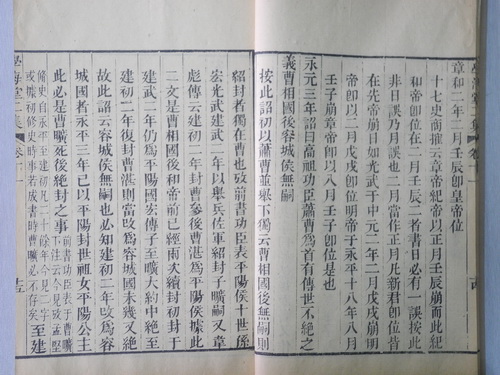 章和二年二月壬辰卽皇帝位
十七史商搉云章帝紀帝以正月壬辰崩而此紀
和帝卽位二月壬辰二者書日必有一誤按此
非日誤乃月誤也二月當作正月凡新君卽位皆
在先帝崩日如光武于中元二年二月戊戌崩明
帝卽以二月戊戌卽位明帝于永平十八年八月
壬子崩章帝卽以八月壬子卽位是也
永元三年詔曰高祖功臣蕭曹爲首有傳世不絕之
義曹相國後容城侯無嗣
按此詔初以蕭曹並舉下獨云曹相國後無嗣則
紹封者獨在曹也攷前書功臣表平陽侯十世孫
宏光武建武二年以舉兵佐軍紹封子曠嗣又韋
彪傳云建初二年封曹參後曹湛爲平陽侯據此
二文是曹相國至和帝前已經兩次續初封于
建武二年仍爲平陽國宏傳子至曠大約中絕至
建初二年復封曹湛則當改爲容城國未幾又絕
城國者永平三年已以平陽封世祖女平陽公主
容城侯無嗣也必知建初二年改爲容
此必是曹曠死後絕封之事
前書功臣表于曹曠
下注云今見攷孟堅
脩史自永平至建初凡二十餘年今見二字
或據初修史時事若成書時曹曠必不存矣
至建
學海堂二集
卷十一